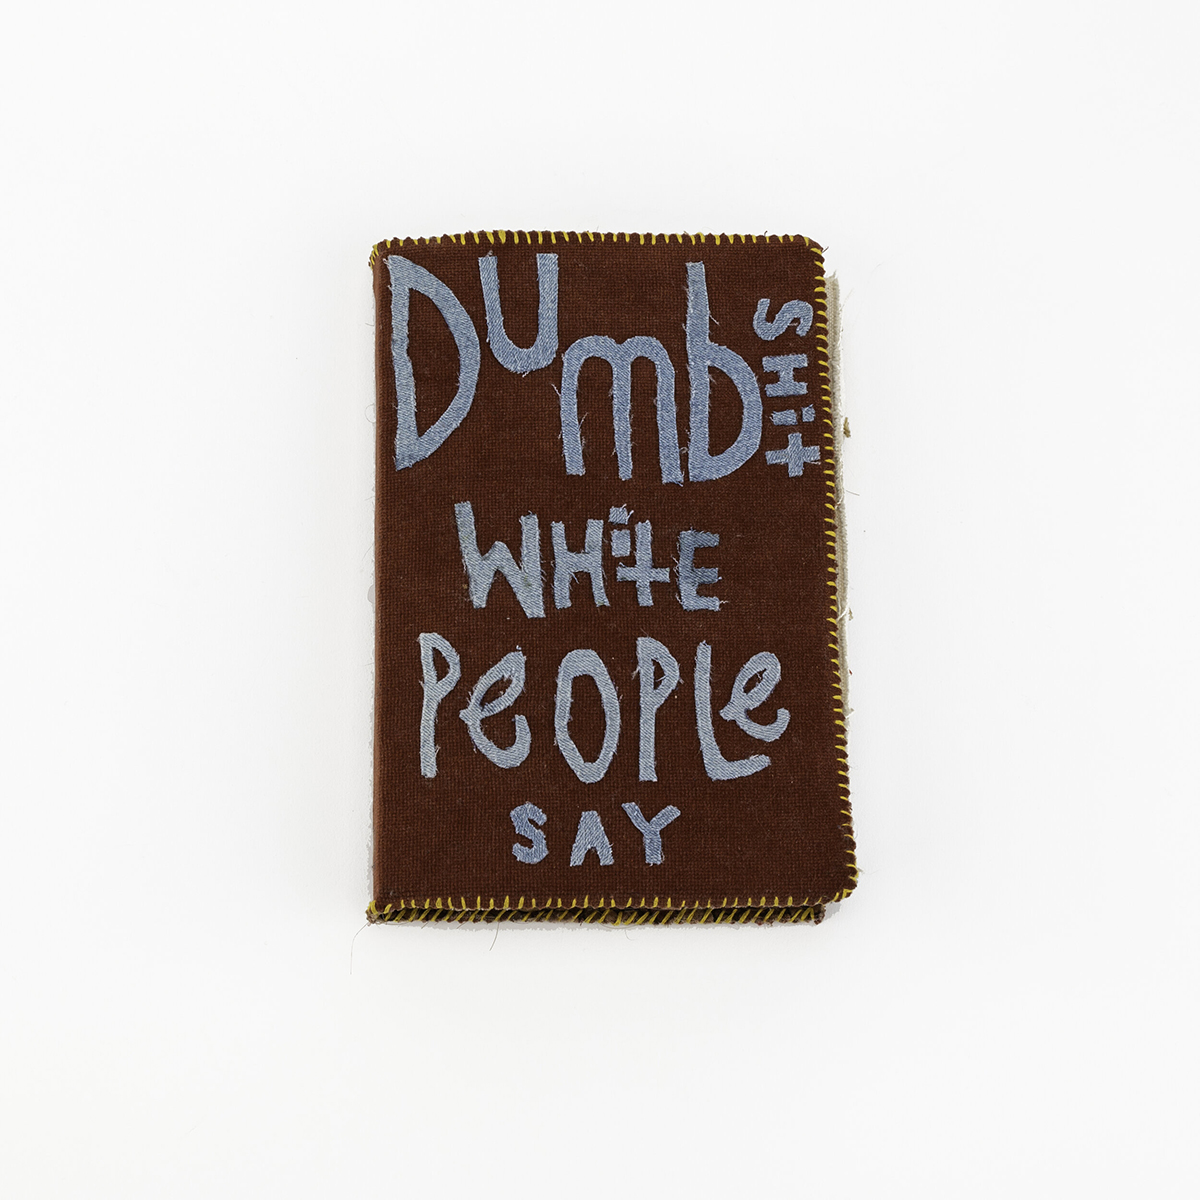 Dumb
SHit
WHitE
PeOPLe
SAY